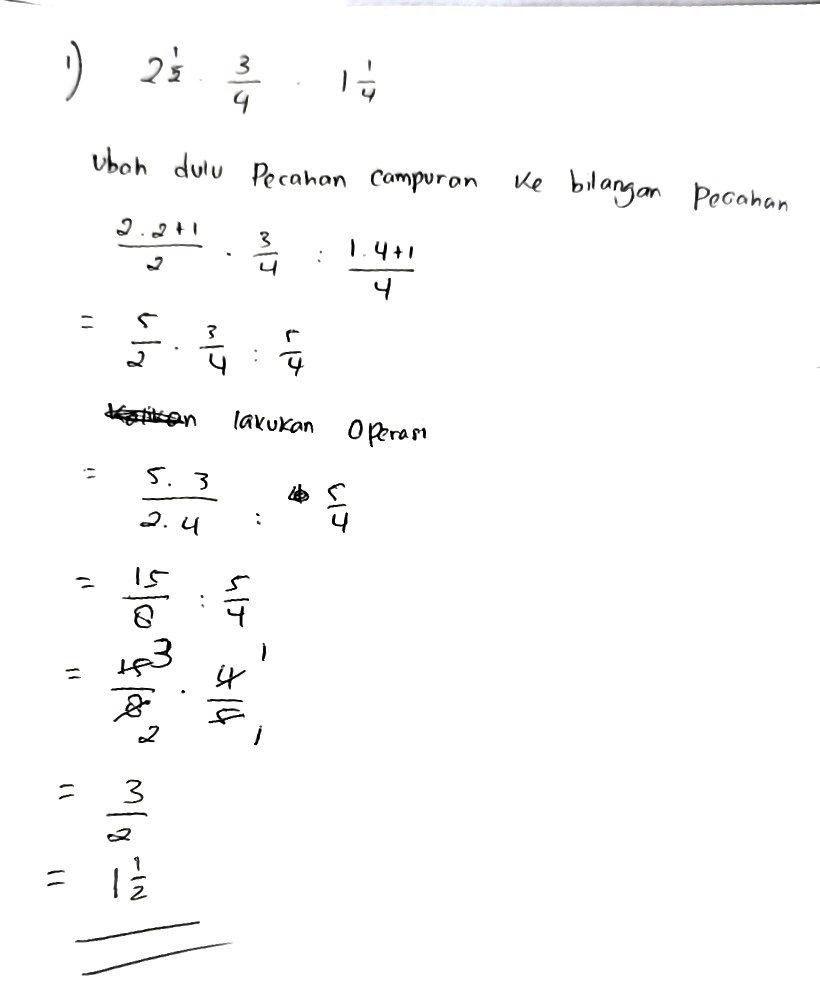 1) 2 1/2 . 3/4 . 1 1/4
Ubah dulu Pecahan Campuran ke bilangan Pecahan
2.2+1/2 . 3/4 : 1.4+1/4
= 5/2 . 3/4 : 5/4
lakukan Operasi
= 5.3/2.4 : 5/4
= 15/8 : 5/4
= 15/8 3 2 . 4/5 1 1
= 3/2
= 1 1/2